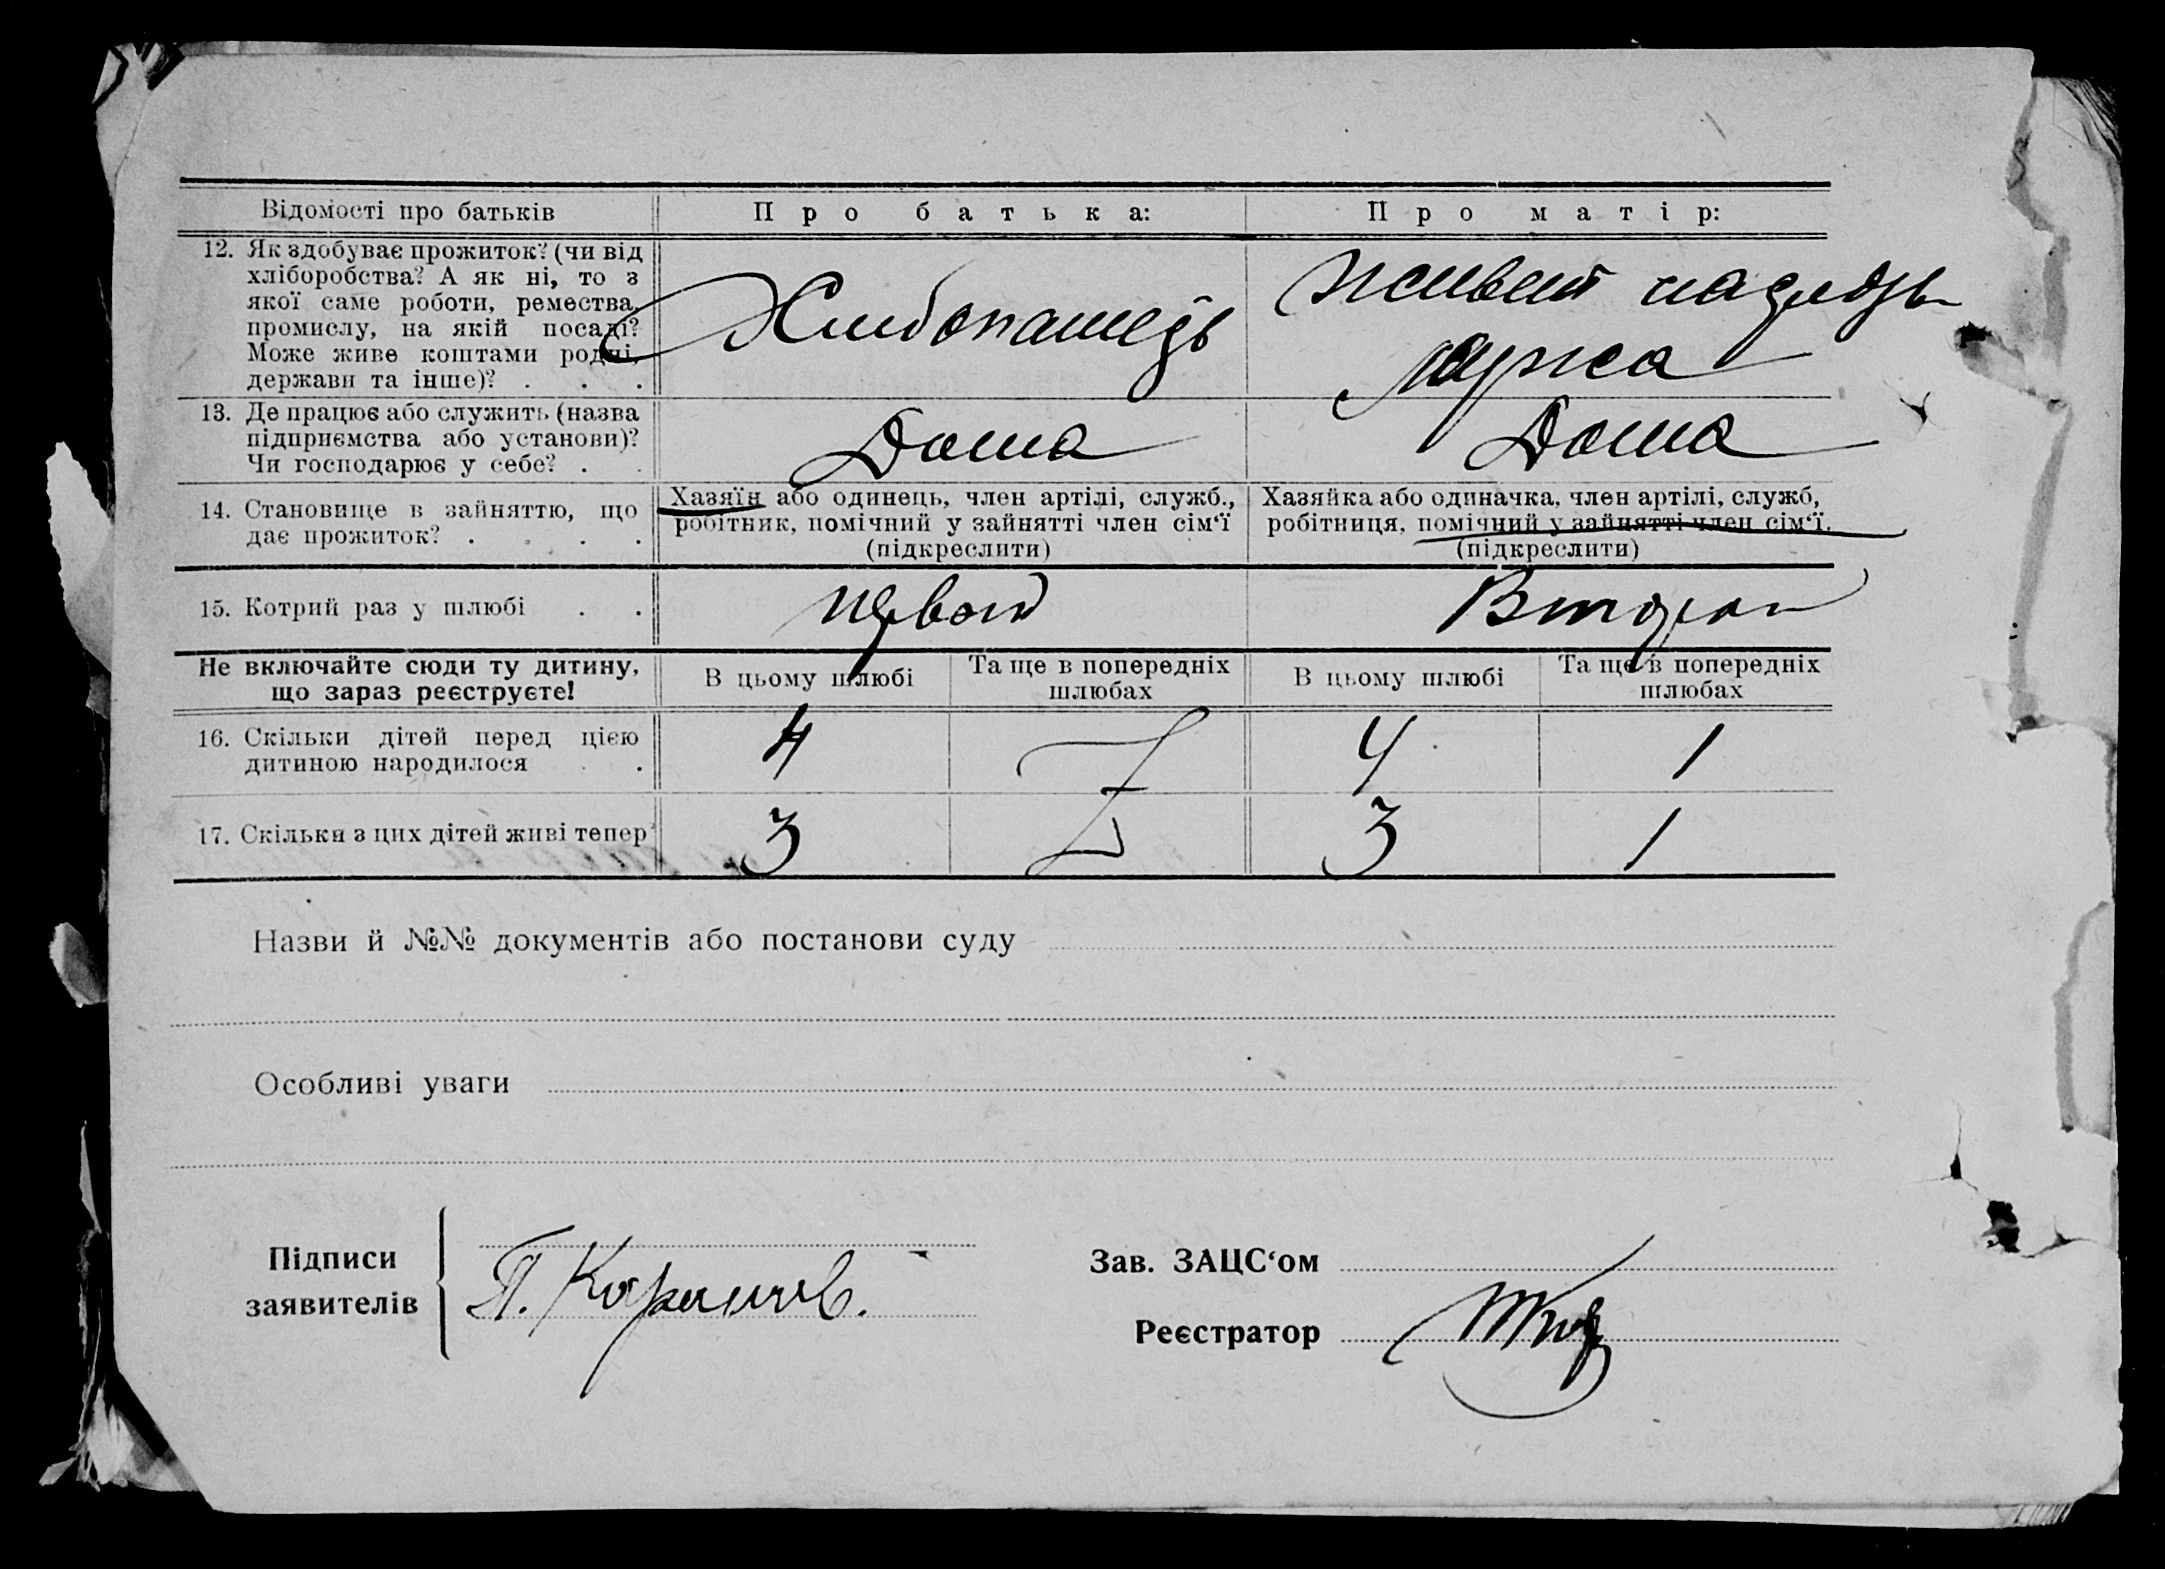 Відомості про батьків
Про батька:
Про матір:
12. Як здобуває прожиток? (чи від
хліборобства? А як ні, то з
якої саме роботи, ремества,
промислу, на якій посаді?
Може живе коштами родні,
держави та інше)? . . .
Хлибопашець
живет на средс
мужа
13. Де працює або служить (назва
підприємства або установи)?
Чи господарює у себе? . .
Дома
Дома
14. Становище в зайняттю, що
дає прожиток? . . . .
Хазяїн або одинець, член артілі, служб.,
робітник, помічний у зайнятті член сім‘ї
(підкреслити)
Хазяйка або одиначка, член артілі, служб,
робітниця, помічний у зайнятті член сім‘ї.
(підкреслити)
15. Котрий раз у шлюбі . .
первой
Второй
Не включайте сюди ту дитину,
що зараз реєструєте!
В цьому шлюбі
Та ще в попередніх
шлюбах
В цьому шлюбі
Та ще в попередніх
шлюбах
16. Скільки дітей перед цією
дитиною народилося . .
4
4
1
17. Скільки з цих дітей живі тепер
3
3
1
Назви й №№ документів або постанови суду
Особливі уваги
Підписи
заявителів
П.
Зав. ЗАЦС‘ом
Реєстратор